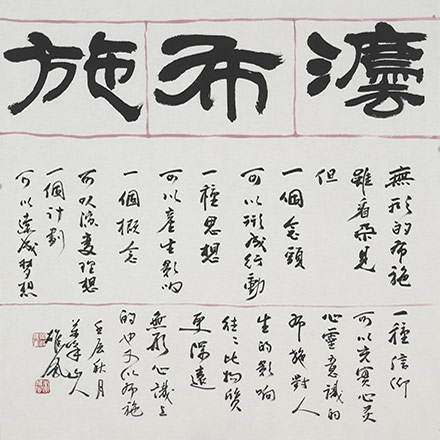 灋布施
無形的布施
雖看不見
但
一個念頭
可以形成行動
一種思想
可以產生影响
一個概念
可以演變理想
一個計劃
可以達成夢想
一種信仰
可以充實心灵
心靈意識的
布施對人
生的影響
往往比物質
更深遠
無形心識上
的以布施
壬辰秋月
山人
雄風